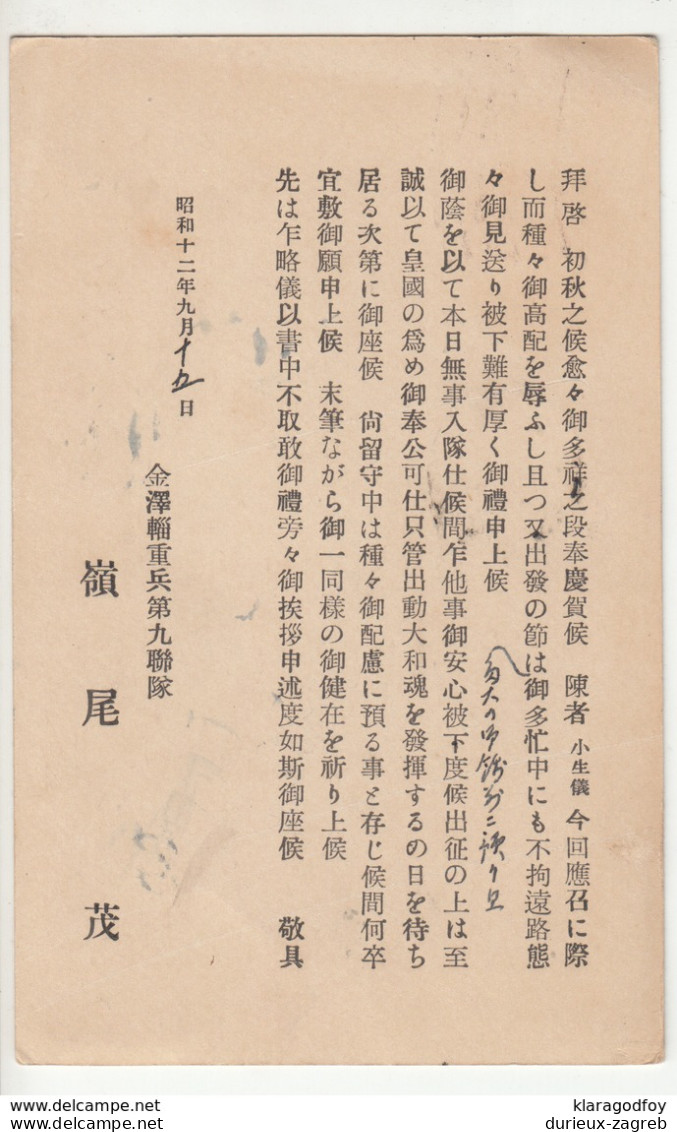 拜啓　初秋之候愈々御多祥之段奉慶賀候　陳者 小生儀 今回應召に際
し而種々御高配を辱ふし且つ又出發の節は御多忙中にも不拘遠路態
々御見送り被下難有厚く御禮申上候
御蔭を以て本日無事入隊仕候間乍他事御安心被下度候出征の上は至
誠以て皇國の爲め御奉公可仕只管出動大和魂を發揮するの日を待ち
居る次第に御座候　尙留守中は種々御配慮に預る事と存じ候間何卒
宜敷御願申上候　末筆ながら御一同様の御健在を祈り上候
先は乍略儀以書中不取敢御禮旁々御挨拶申述度如斯御座候　敬具
昭和十二年九月十五日
金澤輜重兵第九聯隊
嶺尾茂
klaragodfoy
durieux-zagreb